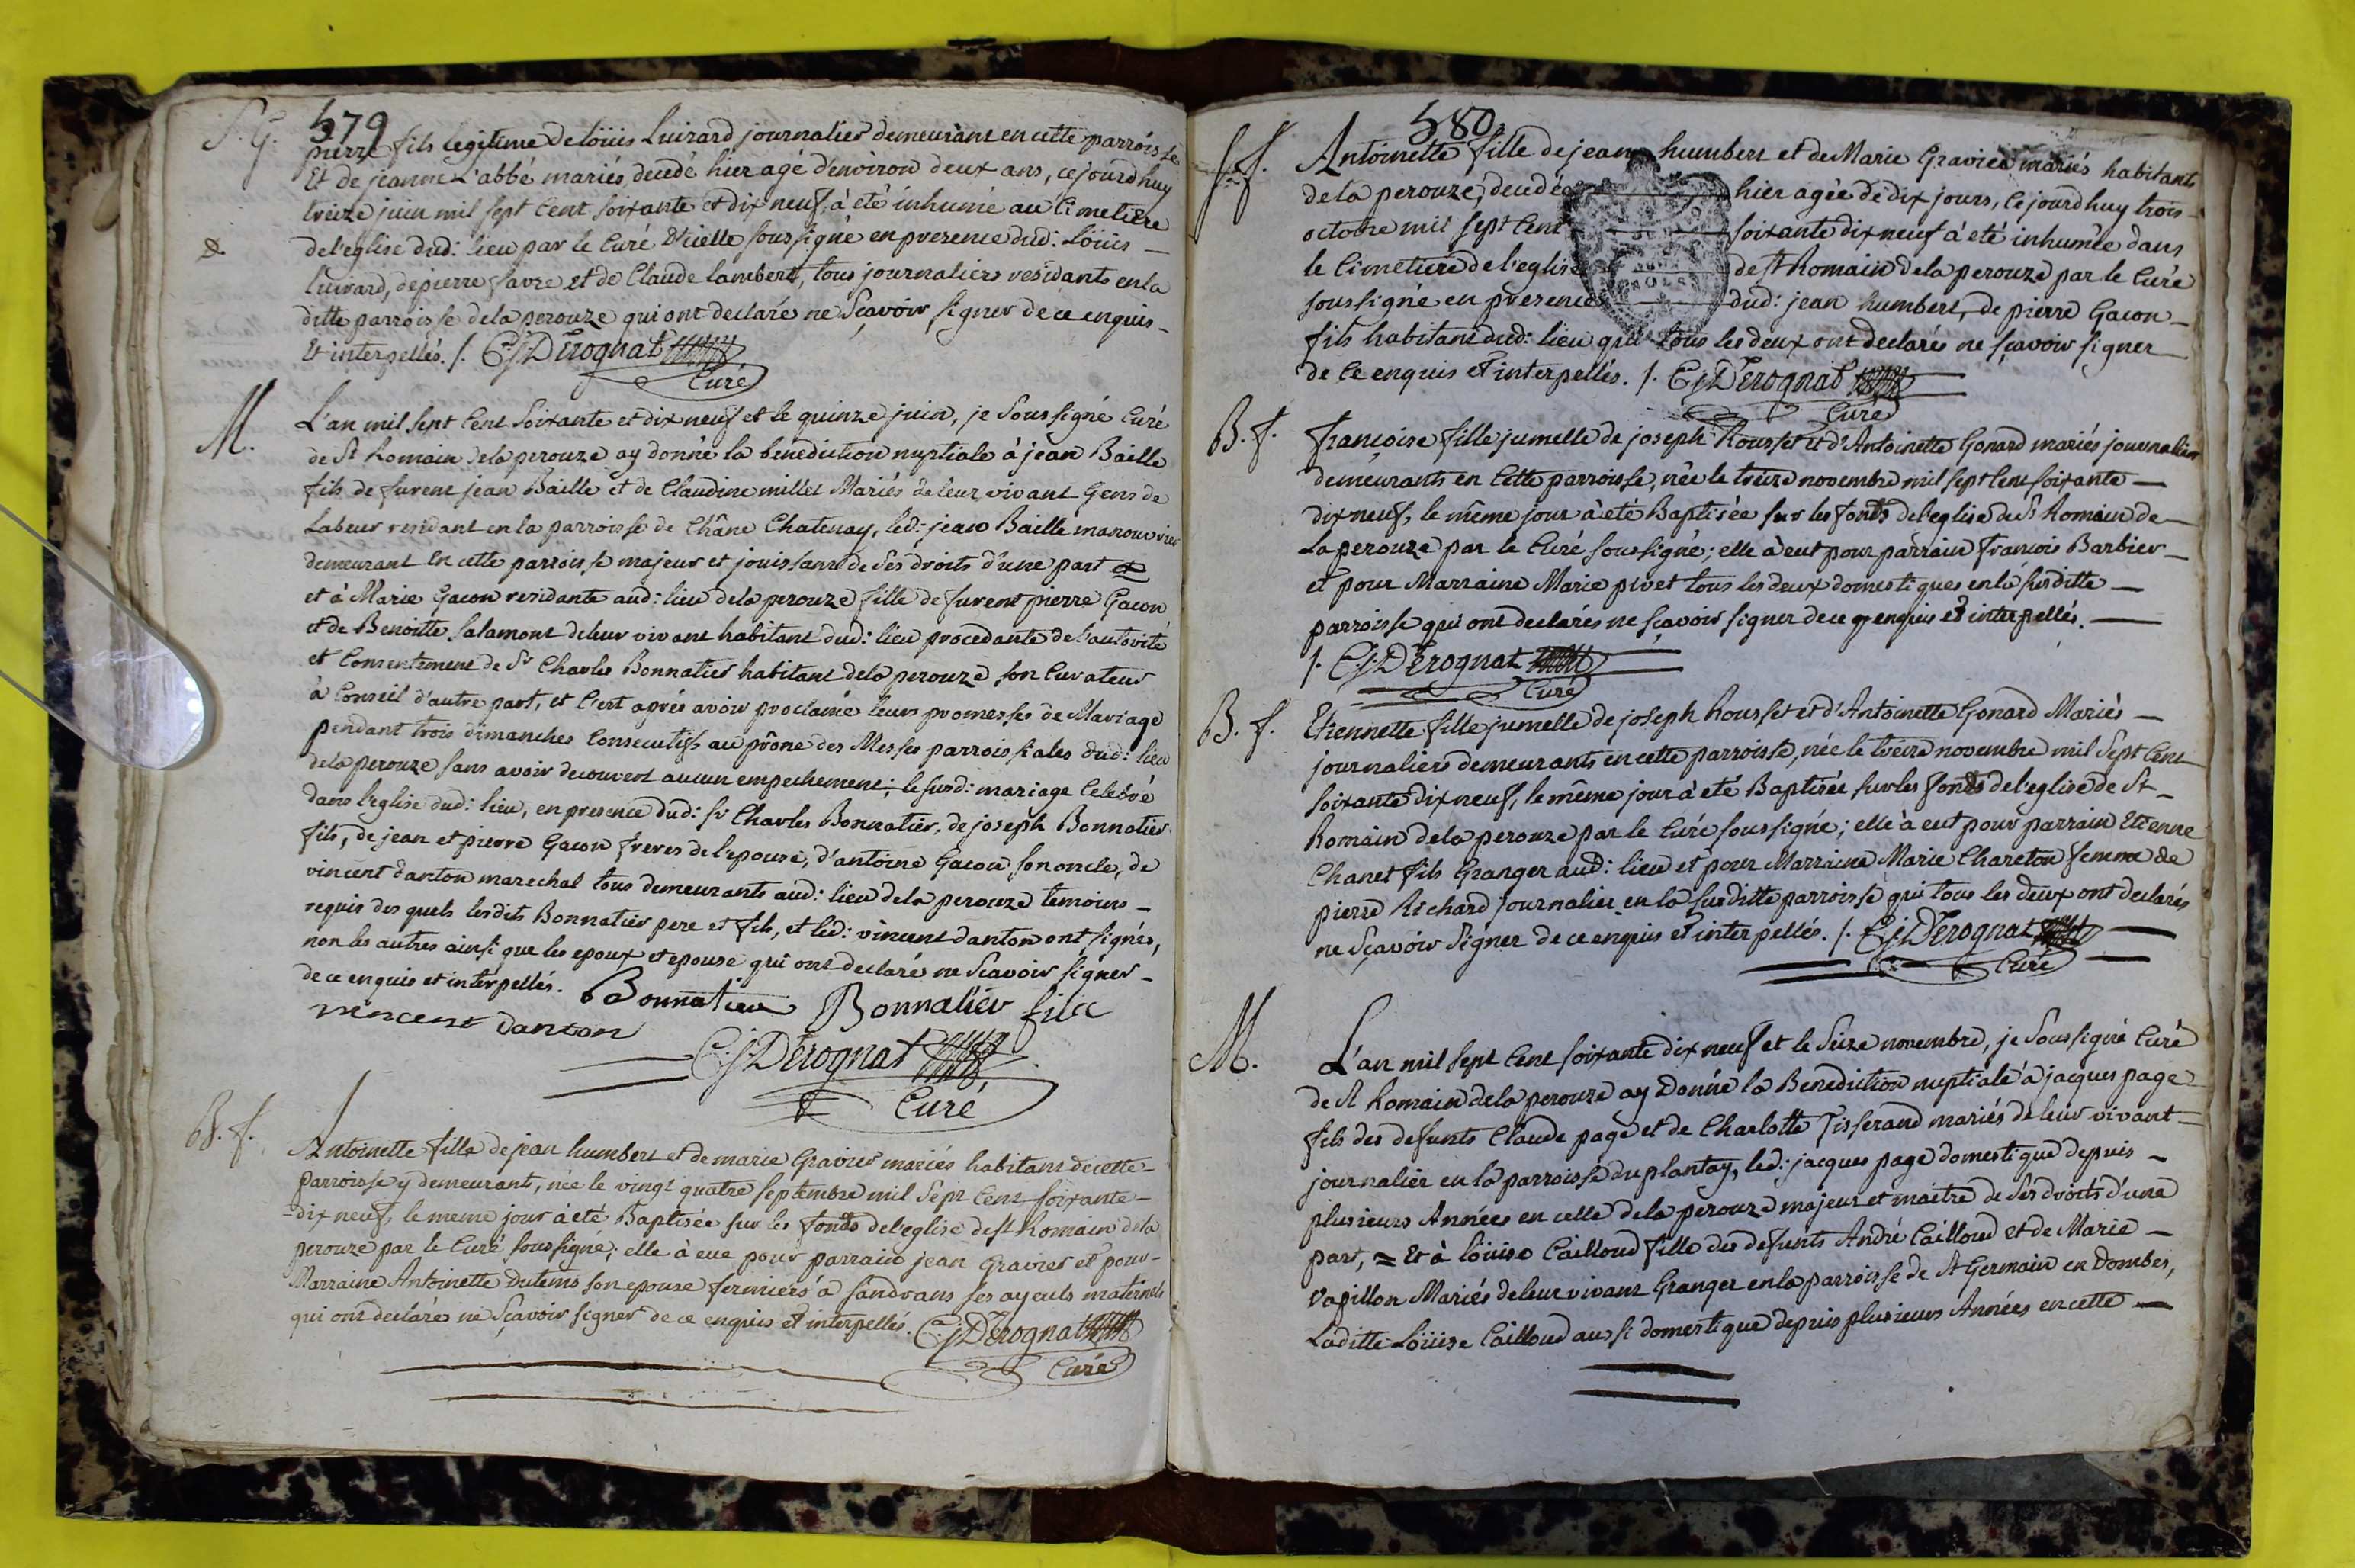 579
S. G.
pierre fils legitime de loüis Luizard journalier demeurant en cette parroisse
Et de jeanne L'abbé mariés, decedé hier agé d'environ deux ans, ce jourd'huy
treize juin mil sept Cent soixante et dix neuf, à été inhumé au Cimetiere
de l'eglise dud: lieu par le Curé d'icelle soussigné en presence dud: Loüis
Luizard, de pierre favre et de Claude lambert, tous journaliers residants en la
ditte parroisse dela perouze qui ont declaré ne Sçavoir signer de ce enquis
Et interpellés. /. C:j: Derognat
Curé
M.
L'an mil sept Cent Soixante et dix neuf et le quinze juin, je Soussigné Curé
de St Romain dela perouze ay donné la benediction nuptiale à jean Baille
fils de furent jean Baille et de Claudine millet Mariés de leur vivant Gens de
Labeur residant en la parroisse de Châne Chatenay, led: jean Baille manouvrier
demeurant en cette parroisse majeur et jouissant de Ses droits d'une part et
et à Marie Gacon residante aud: lieu dela perouze fille de furent pierre Gacon
et de Benoitte Salamont de leur vivant habitant dud: lieu procedante de l'autorité
et Consentement de Sr Charles Bonnatier habitant dela perouze son Curateur
à Conseil d'autre part, et C'est aprés avoir proclamé leurs promesses de Mariage
pendant trois dimanches Consecutifs au prône des Messes parroissiales dud: lieu
dela perouze sans avoir decouvert aucun empechement; le susd: mariage Celebré
dans l'eglise dud: lieu, en presence dud: sr Charles Bonnatier, de joseph Bonnatier
fils, de jean et pierre Gacon freres de l'epouse, d'antoine Gacon son oncle, de
vincent danton marechal tous demeurants aud: lieu dela perouze temoins
requis des quels lesdits Bonnatier pere et fils, et led: vincent danton ont signés,
non les autres ainsi que les epoux et epouse qui ont declaré ne Scavoir signer
de ce enquis et interpellés. Bonnatier Bonnatier fils
vincent danton
C:j: Derognat
Curé
B. f.
Antoinette fille de jean humbert et de marie Gravier mariés habitant de cette
parroisse y demeurant, née le vingt quatre septembre mil Sept Cent soixante
dix neuf, le meme jour à été Baptisée sur les fonds de l'eglise de St Romain dela
perouze par le Curé soussigné; elle à eue pour parrain jean Gravier et pour
Marraine Antoinette Dutems son epouse fermiers à sandrans ses ayeuls maternels
qui ont declarés ne Sçavoir signer de ce enquis et interpellés. C:j: Derognat
Curé
580
S. f.
Antoinette fille de jean humbert et de Marie Gravier mariés habitants
de la perouze, decedée hier agée de dix jours, ce jourd'huy trois
octobre mil sept Cent soixante dix neuf à été inhumée dans
le Cimetiere de l'eglise de St Romain dela perouze par le Curé
soussigné en presence dud: jean humbert, de pierre Gacon
fils habitant dud: lieu qui tous les deux ont declarés ne sçavoir signer
de ce enquis et interpellés. /. C:j: Derognat
Curé
B. f.
françoise fille jumelle de joseph Rousset et d'Antoinette Gonard mariés journaliers
demeurants en Cette parroisse, née le treize novembre mil sept Cent soixante
dix neuf, le même jour à été Baptisée sur les fonds de l'eglise de St Romain de
La perouze par le Curé soussigné; elle à eut pour parrain francois Barbier
et pour Marraine Marie pivet tous les deux domestiques en la susditte
parroisse qui ont declarés ne sçavoir signer de ce enquis et interpellés.
/. C:j: Derognat
Curé
B. f.
Etiennette fille jumelle de joseph Rousset et d'Antoinette Gonard Mariés
journaliers demeurants en cette parroisse, née le treize novembre mil Sept Cent
soixante dix neuf, le même jour à été Baptisée sur les fonds de l'eglise de St
Romain dela perouze par le Curé soussigné; elle à eut pour parrain Etienne
Chanet fils Granger aud: lieu et pour Marraine Marie Chareton femme de
pierre Richard journalier en la susditte parroisse qui tous les deux ont declarés
ne Sçavoir Signer de ce enquis et interpellés. /. C:j: Derognat
Curé
M.
L'an mil sept Cent soixante dix neuf et le Seize novembre, je Soussigné Curé
de St Romain dela perouze ay Donné la Benediction nuptiale à jacques page
fils des defunts Claude page et de Charlotte Tisserand mariés de leur vivant
journalier en la parroisse du plantay, led: jacques page domestique depuis
plusieurs Années en celle dela perouze majeur et maitre de Ses droits d'une
part, = Et à loüise Cailloud fille des defunts André Cailloud et de Marie
Vapillon Mariés de leur vivant Granger en la parroisse de St Germain en Dombes,
Laditte Loüise Cailloud aussi domestique depuis plusieurs Années en cette